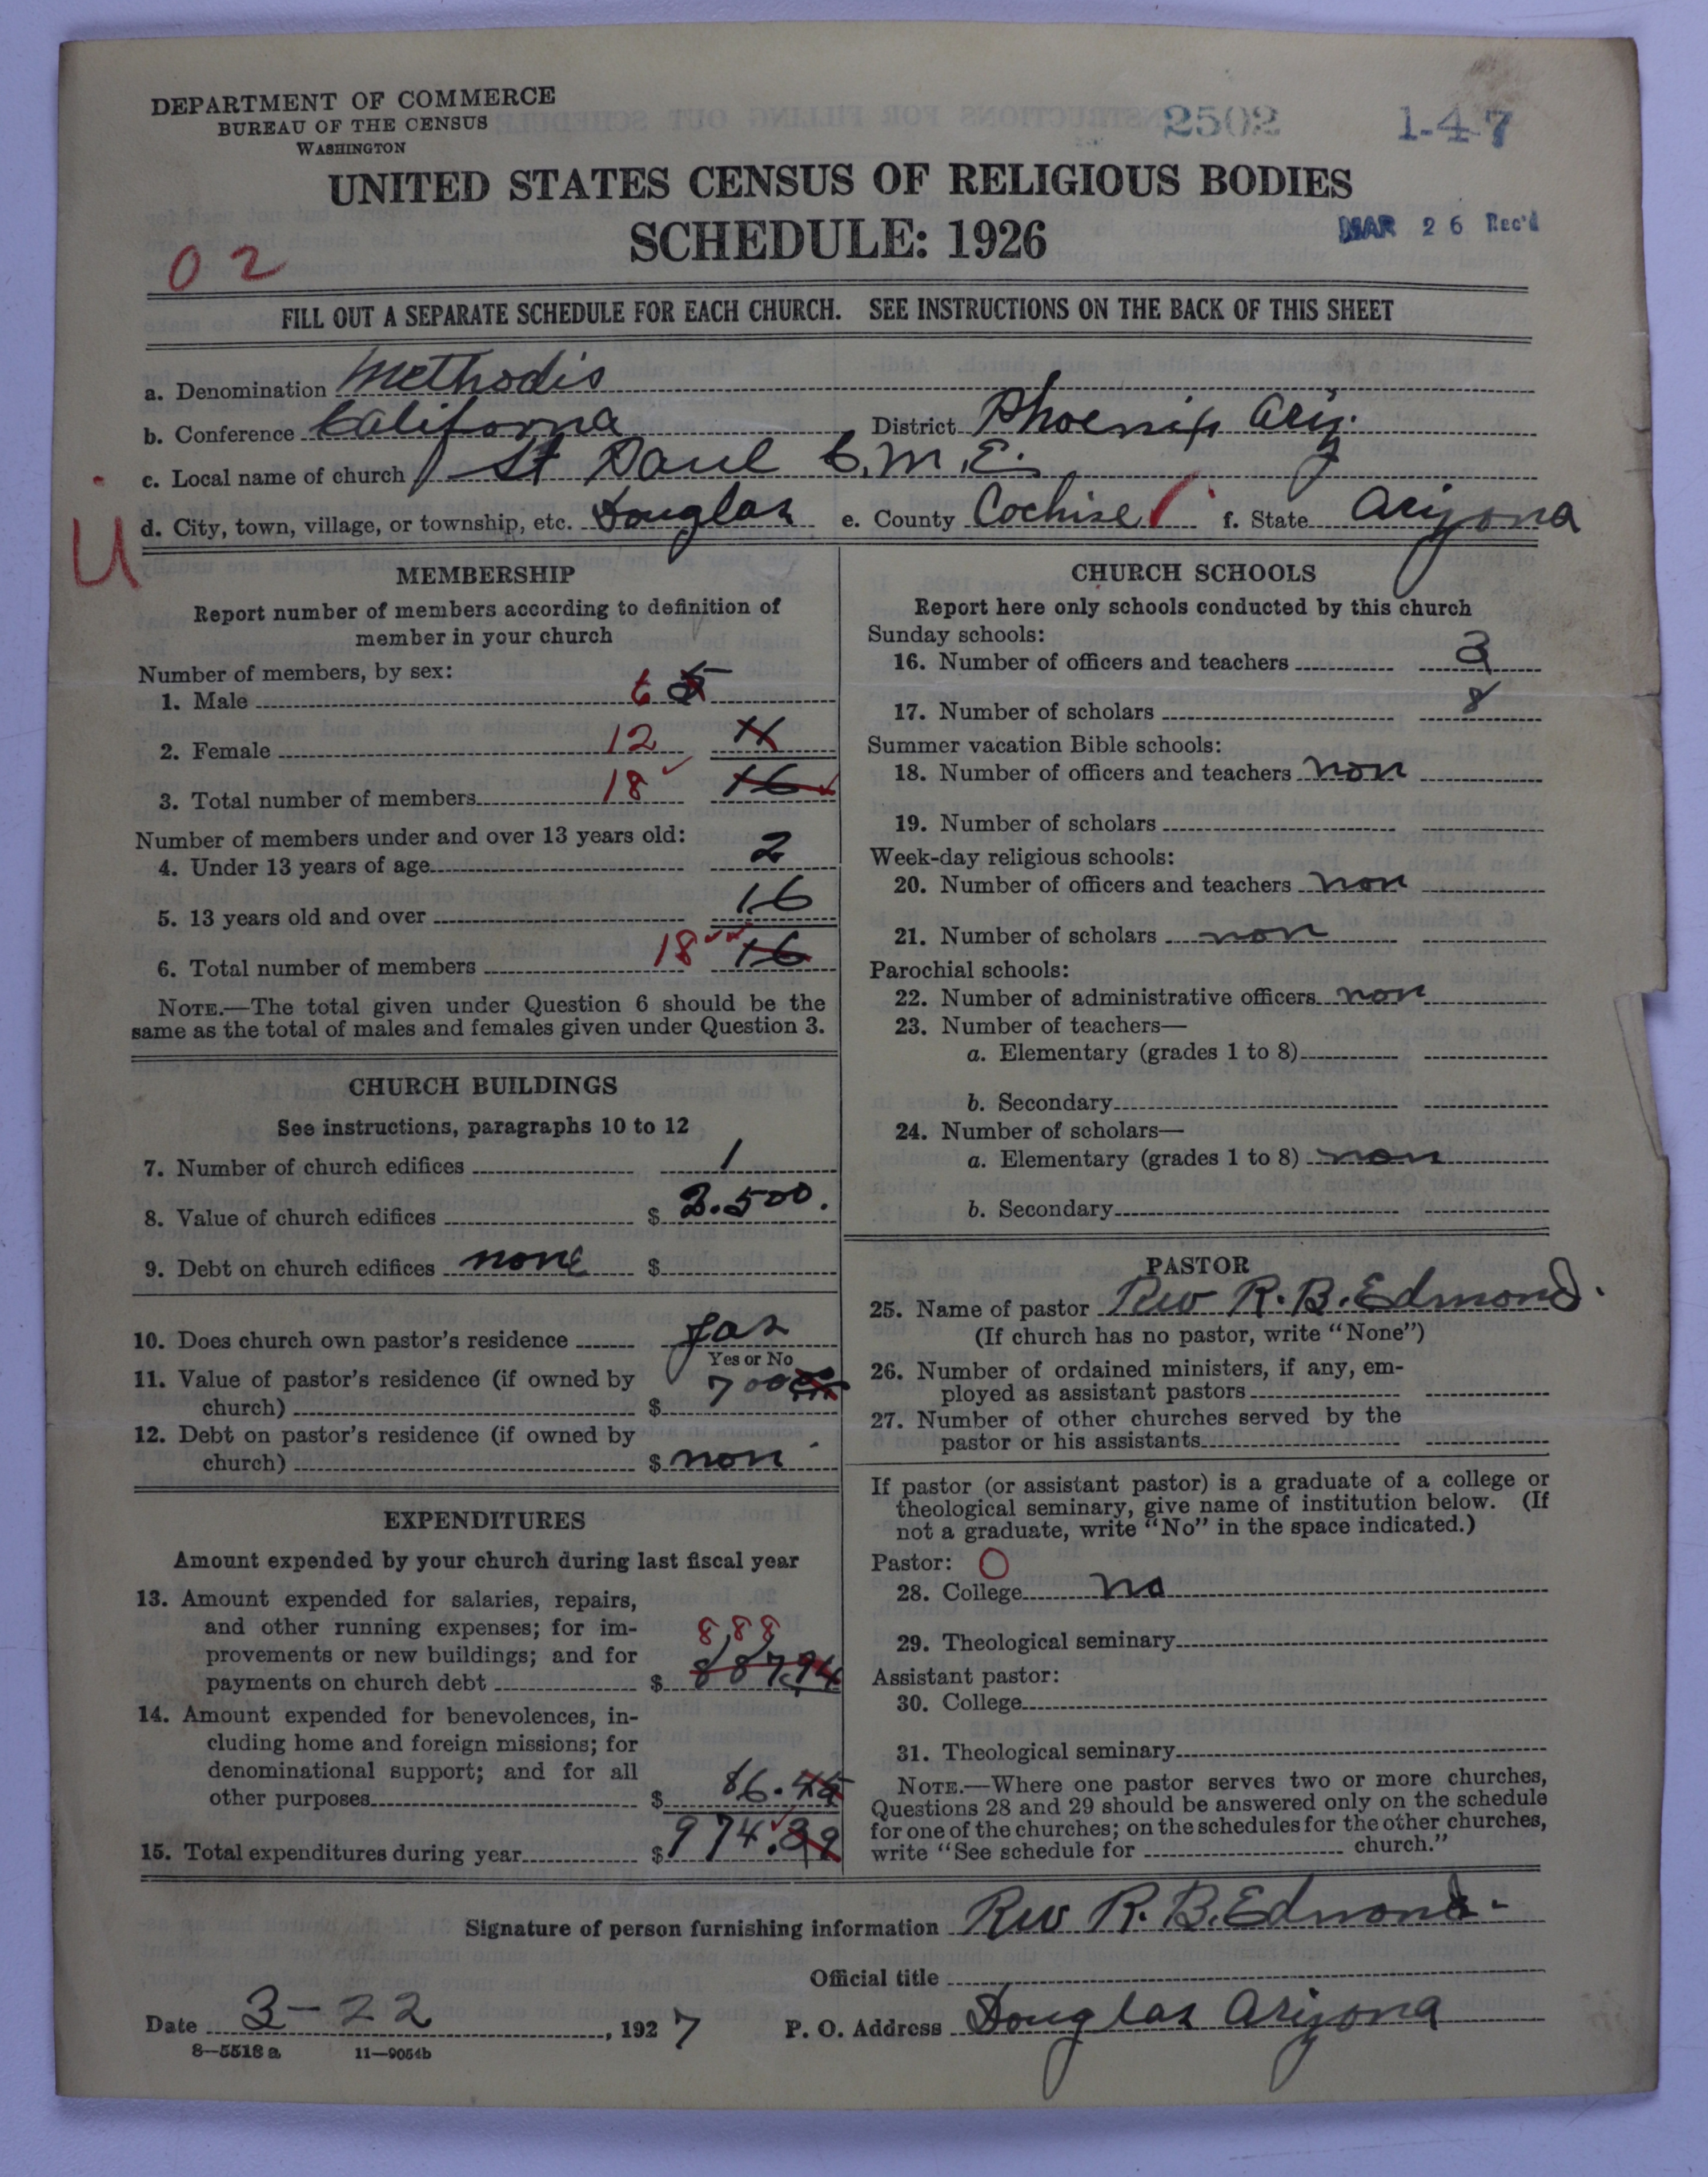 DEPARTMENT OF COMMERCE
BUREAU OF THE CENSUS
WASHINGTON
2502
1-47
UNITED STATES CENSUS OF RELIGIOUS BODIES
SCHEDULE: 1926
MAR 26 Rec'd
02
FILL OUT A SEPARATE SCHEDULE FOR EACH CHURCH. SEE INSTRUCTIONS ON THE BACK OF THIS SHEET
a. Denomination Methodis
b. Conference California District Phoenix Ariz.
c. Local name of church St Paul C.M.E.
d. City, town, village, or township, etc. Douglas e. County Cochise f. State Arizona
U
MEMBERSHIP
Report number of members according to definition of
member in your church
Number of members, by sex:
1. Male 6 5
2. Female 12 11
3. Total number of members 18 16
Number of members under and over 13 years old:
4. Under 13 years of age 2
5. 13 years old and over 16
6. Total number of members 18 16
NOTE.—The total given under Question 6 should be the
same as the total of males and females given under Question 3.
CHURCH BUILDINGS
See instructions, paragraphs 10 to 12
7. Number of church edifices 1
8. Value of church edifices $ .500.
9. Debt on church edifices none $
10. Does church own pastor's residence yas
Yes or No
11. Value of pastor's residence (if owned by
church) $ 700
12. Debt on pastor's residence (if owned by
church) $ non
EXPENDITURES
Amount expended by your church during last fiscal year
13. Amount expended for salaries, repairs,
and other running expenses; for im-
provements or new buildings; and for
payments on church debt $ 888 887.94
14. Amount expended for benevolences, in-
cluding home and foreign missions; for
denominational support; and for all
other purposes $ 86.45
15. Total expenditures during year $ 974.39
CHURCH SCHOOLS
Report here only schools conducted by this church
Sunday schools:
16. Number of officers and teachers 3
17. Number of scholars 8
Summer vacation Bible schools:
18. Number of officers and teachers non
19. Number of scholars
Week-day religious schools:
20. Number of officers and teachers non
21. Number of scholars non
Parochial schools:
22. Number of administrative officers non
23. Number of teachers—
a. Elementary (grades 1 to 8)
b. Secondary
24. Number of scholars—
a. Elementary (grades 1 to 8) non
b. Secondary
PASTOR
25. Name of pastor Rev R. B. Edmond.
(If church has no pastor, write "None")
26. Number of ordained ministers, if any, em-
ployed as assistant pastors
27. Number of other churches served by the
pastor or his assistants
If pastor (or assistant pastor) is a graduate of a college or
theological seminary, give name of institution below. (If
not a graduate, write "No" in the space indicated.)
Pastor: O
28. College no
29. Theological seminary
Assistant pastor:
30. College
31. Theological seminary
NOTE.—Where one pastor serves two or more churches,
Questions 28 and 29 should be answered only on the schedule
for one of the churches; on the schedules for the other churches,
write "See schedule for church."
Signature of person furnishing information Rev R. B. Edmond.
Official title
Date 3-22, 1927 P. O. Address Douglas Arizona
8—5518 a 11—9054b